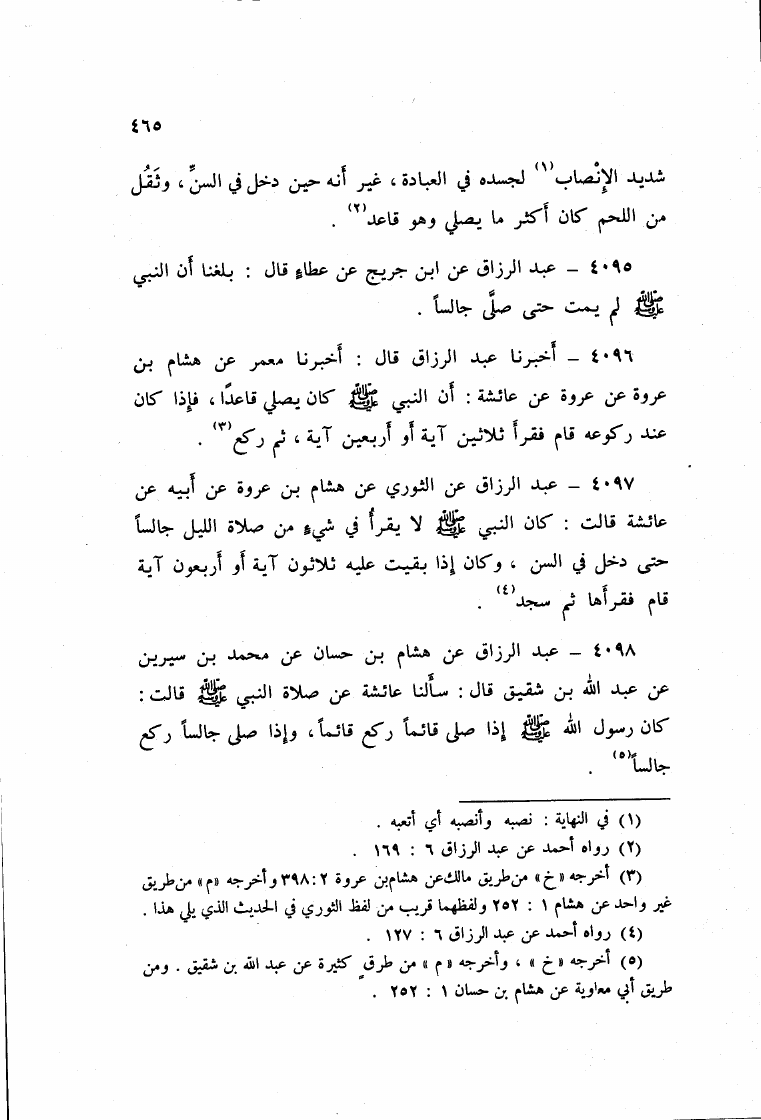 ٤٦٥
شديد الإنْصاب(١) لجسده في العبادة ، غير أنه حين دخل في السنِّ ، وثَقُل
من اللحم كان أكثر ما يصلي وهو قاعد(٢) .
٤٠٩٥ – عبد الرزاق عن ابن جريج عن عطاءٍ قال : بلغنا أن النبي
ﷺ لم يمت حتى صلَّى جالساً .
٤٠٩٦ – أخبرنا عبد الرزاق قال : أخبرنا معمر عن هشام بن
عروة عن عروة عن عائشة : أن النبي ﷺ كان يصلي قاعدًا ، فإذا كان
عند ركوعه قام فقرأ ثلاثين آية أو أربعين آية ، ثم ركع(٣) .
٤٠٩٧ – عبد الرزاق عن الثوري عن هشام بن عروة عن أبيه عن
عائشة قالت : كان النبي ﷺ لا يقرأُ في شيءٍ من صلاة الليل جالساً
حتى دخل في السن ، وكان إذا بقيت عليه ثلاثون آية أو أربعون آية
قام فقرأها ثم سجد(٤) .
٤٠٩٨ – عبد الرزاق عن هشام بن حسان عن محمد بن سيرين
عن عبد الله بن شقيق قال : سألنا عائشة عن صلاة النبي ﷺ قالت :
كان رسول الله ﷺ إذا صلى قائماً ركع قائماً ، وإذا صلى جالساً ركع
جالساً(٥) .
(١) في النهاية : نصبه وأنصبه أي أتعبه .
(٢) رواه أحمد عن عبد الرزاق ٦ : ١٦٩ .
(٣) أخرجه «خ» من طريق مالك عن هشام بن عروة ٢ : ٣٩٨ وأخرجه «م» من طريق
غير واحد عن هشام ١ : ٢٥٢ ولفظهما قريب من لفظ الثوري في الحديث الذي يلي هذا .
(٤) رواه أحمد عن عبد الرزاق ٦ : ١٢٧ .
(٥) أخرجه «خ» ، وأخرجه «م» من طرقٍ كثيرة عن عبد الله بن شقيق . ومن
طريق أبي معاوية عن هشام بن حسان ١ : ٢٥٢ .